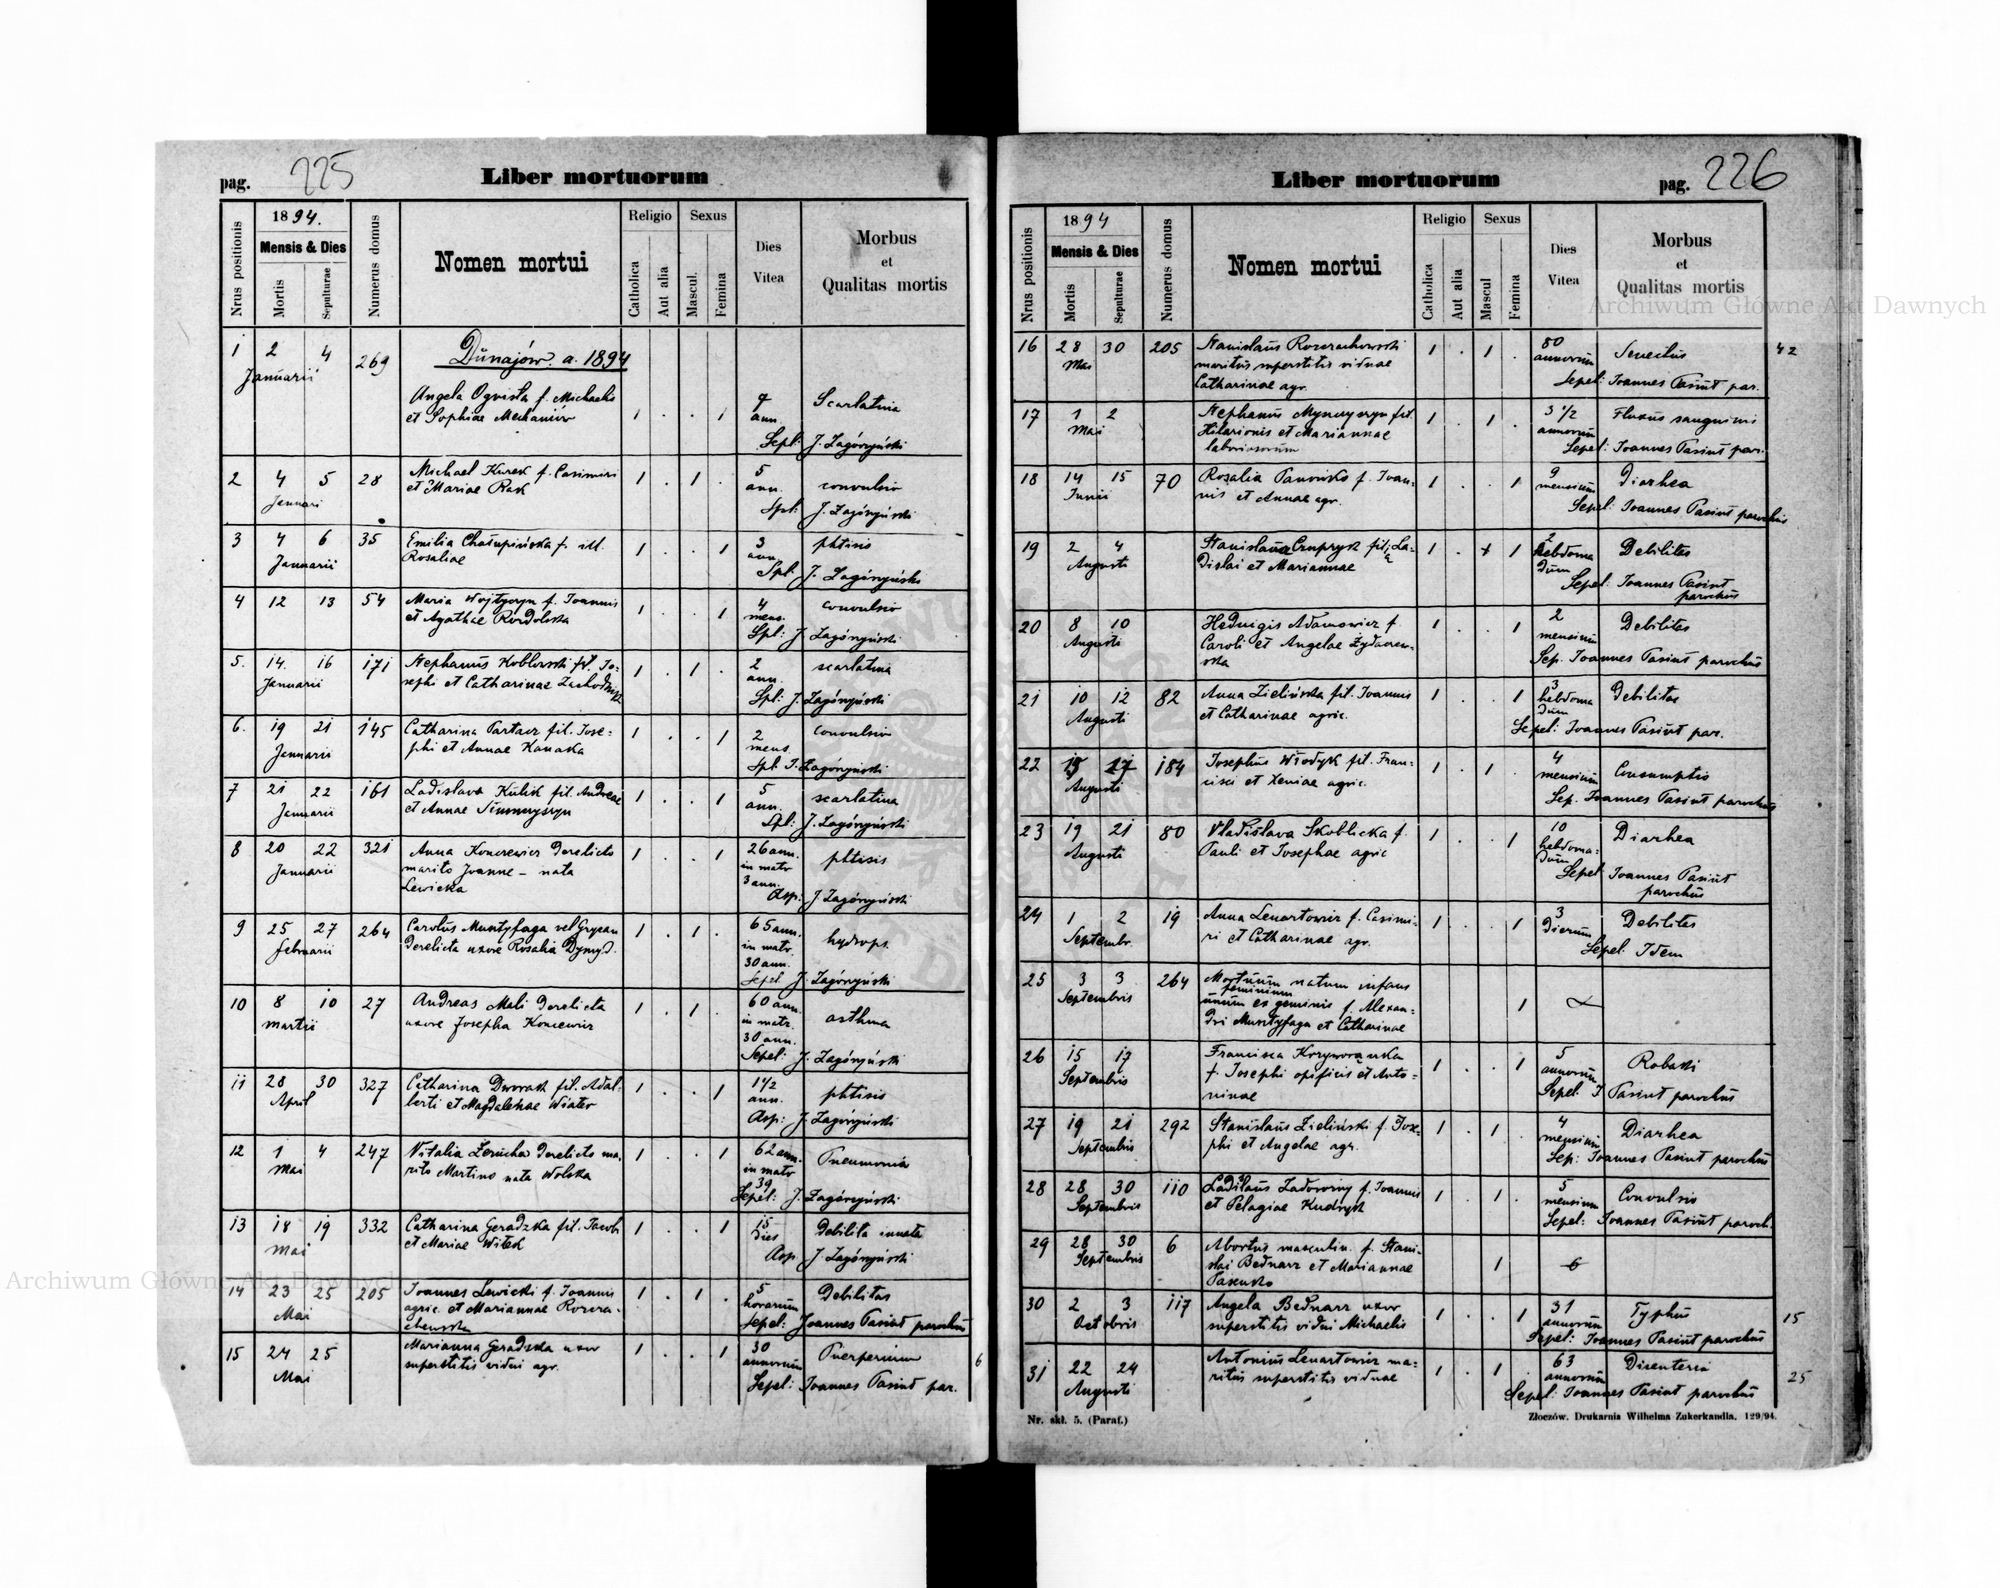 pag. 225
Liber mortuorum
Nrus positionis
1894.
Mensis & Dies
Mortis
Sepulturae
Numerus domus
Nomen mortui
Religio
Catholica
Aut alia
Sexus
Mascul.
Femina
Dies
Vitea
Morbus
et
Qualitas mortis
Dunajów a. 1894
1 2 4 269
Januarii
Angela f. Michaelis 1 . . 1 7 Scarlatina
et Sophiae ann.
Sepl: J. Zagórzyński
2 4 5 28 Michael Kurek f. Casimiri 1 . 1 . 5
Januari et Mariae Rak ann. convulsio
Spl: J. Zagórzyński
3 4 6 35 Emilia f. ill. 1 . . 1 3 phtisis
Januarii Rosaliae ann.
Spl. J. Zagórzyński
4 12 13 54 Maria f. Joannis 1 . . 1 4 convulsio
et Agathae mens.
Spl: J Zagórzyński
5. 14. 16 171 Stephanus fil. Jo- 1 . 1 . 2 scarlatina
Januarii sephi et Catharinae ann.
Spl: J. Zagórzyński
6. 19 21 145 Catharina fil. Jose- 1 . . 1 2 convulsio
Januarii phi et Annae mens.
Spl. J. Zagórzyński
7 21 22 161 Ladislava Kulik fil. Andreae 1 . . 1 5 scarlatina
Januarii et Annae ann.
Spl: J. Zagórzyński
8 20 22 321 Anna Koncewicz derelicto 1 . . 1 26 ann. phtisis
Januarii marito Joanne - nata in matr
Lewicka 3 ann.
Asp: J Zagórzyński
9 25 27 264 Carolus Muntyfaga vel 1 . 1 . 65 ann. hydrops.
Februarii derelicta uxore Rosalia in matr.
30 ann.
Sepel J. Zagórzyński
10 8 10 27 Andreas Mali derelicta 1 . 1 . 60 ann. asthma
martii uxore Josepha Koncewicz in matr.
30 ann.
Sepel: J. Zagórzyński
11 28 30 327 Catharina Dworak fil. Adal- 1 . . 1 1 1/2 phtisis
April berti et Magdalenae Wiater ann.
Asp: J. Zagórzyński
12 1 4 247 Vitalia derelicto ma- 1 . . 1 62 ann. Pneumonia
Mai rito Martino nata Wolska in matr
39
Sepel: J. Zagórzyński
13 18 19 332 Catharina Geradzka fil. Jacobi 1 . . 1 15 Debilita innata
Mai et Mariae Witek dies
Asp J. Zagórzyński
14 23 25 205 Joannes Lewicki f. Joannis 1 . 1 . 5 Debilitas
Mai agric. et Mariannae horarum
Sepel: Joannes Pasiut parochus
15 24 25 Marianna Geradzka uxor 1 . . 1 30 Puerperium 6
Mai superstitis vidui agr. annorum
Sepel: Joannes Pasiut par.
Liber mortuorum
pag. 226
Nrus positionis
1894
Mensis & Dies
Mortis
Sepulturae
Numerus domus
Nomen mortui
Religio
Catholica
Aut alia
Sexus
Mascul
Femina
Dies
Vitea
Morbus
et
Qualitas mortis
16 28 30 205 Stanislaus 1 . 1 . 80 Senectus 42
Mai maritus superstitis viduae annorum
Catharinae agr. Sepel: Joannes Pasiut par.
17 1 2 Stephanus fil. 1 . 1 . 3 1/2 Fluxus sanguinis
Mai Hilarionis et Mariannae annorum
laboriosorum Sepel: Joannes Pasiut par.
18 14 15 70 Rosalia f. Joan- 1 . . 1 9 Diarhea
Junii nis et Annae agr. mensium
Sepel: Joannes Pasiut parochus
19 2 4 Stanislaua Czupryk filia La- 1 . + 1 2 Debilitas
Augusti dislai et Mariannae hebdoma
dum
Sepel: Joannes Pasiut
parochus
20 8 10 Heduigis Adamowicz f. 1 . . 1 2 Debilitas
Augusti Caroli et Angelae mensium
Sep. Joannes Pasiut parochus
21 10 12 82 Anna Zielińska fil. Joannis 1 . . 1 3 Debilitas
Augusti et Catharinae agric. hebdoma
dum
Sepel: Joannes Pasiut par.
22 17 184 Josephus Włodyk fil. Fran- 1 . 1 . 4 Consumptio
Augusti cisci et Xeniae agric. mensium
Sep. Joannes Pasiut parochus
23 19 21 80 Vladislava Skoblicka f. 1 . . 1 10 Diarhea
Augusti Pauli et Josephae agric hebdoma-
dum
Sepel Joannes Pasiut
parochus
24 1 2 19 Anna Lenartowicz f. Casimi- 1 . . 1 3 Debilitas
Septembr. ri et Catharinae agr. dierum
Sepel: Idem
25 3 3 264 Mortuum natum infans
Septembris feminium
unum ex geminis f. Alexan- 1
dri Muntyfaga et Catharinae
26 15 17 Francisca 1 . . 1 5 Robaki
Septembris f. Josephi opificis et Anto- annorum
ninae Sepel: J Pasiut parochus
27 19 21 292 Stanislaus Zieliński f. Jose- 1 . 1 . 4 Diarhea
Septembris phi et Angelae agr. mensium
Sep: Joannes Pasiut parochus
28 28 30 110 Ladislaus Zadworny f. Joannis 1 1 . 5 Convulsio
Septembris et Pelagiae Kudryk mensium
Sepel: Joannes Pasiut paroch.
29 28 30 6 Abortus masculin. f. Stani-
Septembris slai Bednarz et Mariannae 1
30 2 3 117 Angela Bednarz uxor 1 . . 1 31 Typhus 15
Octobris superstitis vidui Michaelis annorum
Sepel: Joannes Pasiut parochus
31 22 24 Antonius Lenartowicz ma- 1 . 1 63 Disenteria 25
Augusti ritus superstitis viduae annorum
Sepel: Joannes Pasiut parochus
Nr. skł. 5. (Paraf.)
Złoczów. Drukarnia Wilhelma Zukerkandla. 129/94.
Archiwum Główne Akt Dawnych
Archiwum Główne Akt Dawnych